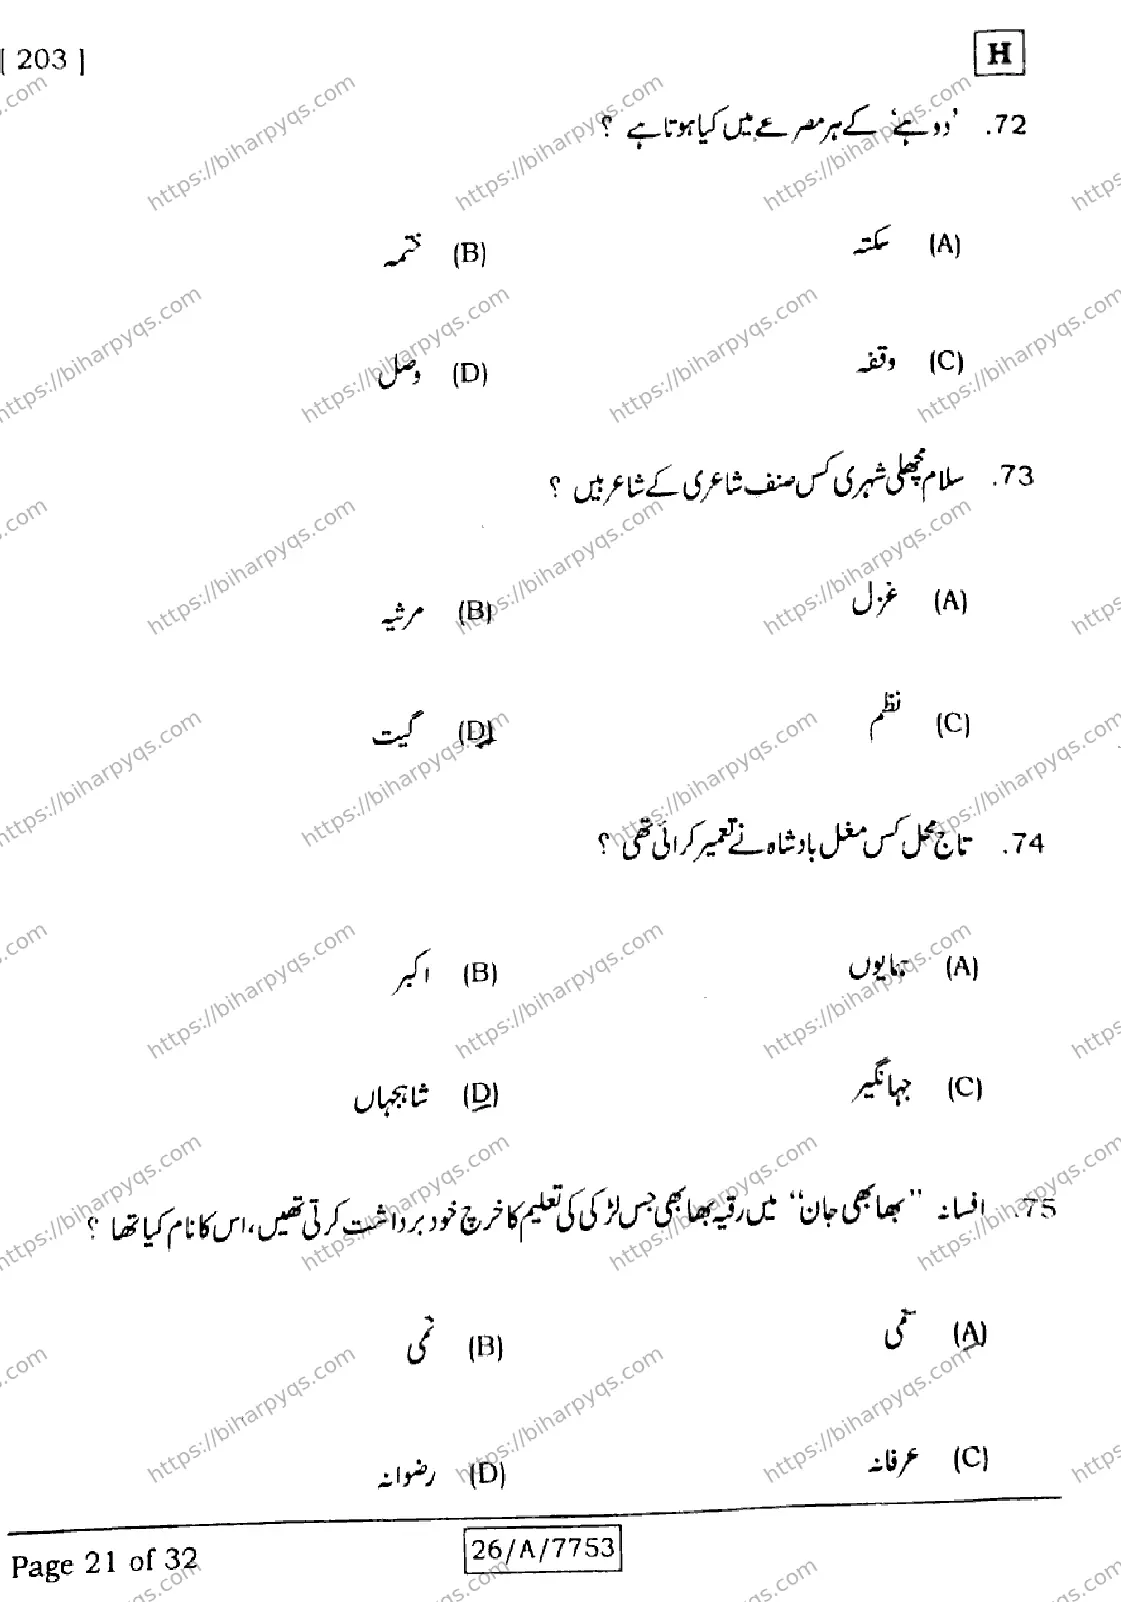 [ 203 ]
H
72. 'دوہے' کے ہر مصرعے میں کیا ہوتا ہے ؟
(A) سکتہ (B) ختمہ
(C) وقفہ (D) وصل
73. سلام مچھلی شہری کس صنف شاعری کے شاعر ہیں ؟
(A) غزل (B) مرثیہ
(C) نظم (D) گیت
74. تاج محل کس مغل بادشاہ نے تعمیر کرائی تھی ؟
(A) ہمایوں (B) اکبر
(C) جہانگیر (D) شاہجہاں
75. افسانہ "بھابھی جان" میں رقیہ بھابھی جس لڑکی کی تعلیم کا خرچ خود برداشت کرتی تھیں، اس کا نام کیا تھا ؟
(A) (B)
(C) عرفانہ (D) رضوانہ
Page 21 of 32
26/A/7753
https://biharpyqs.com